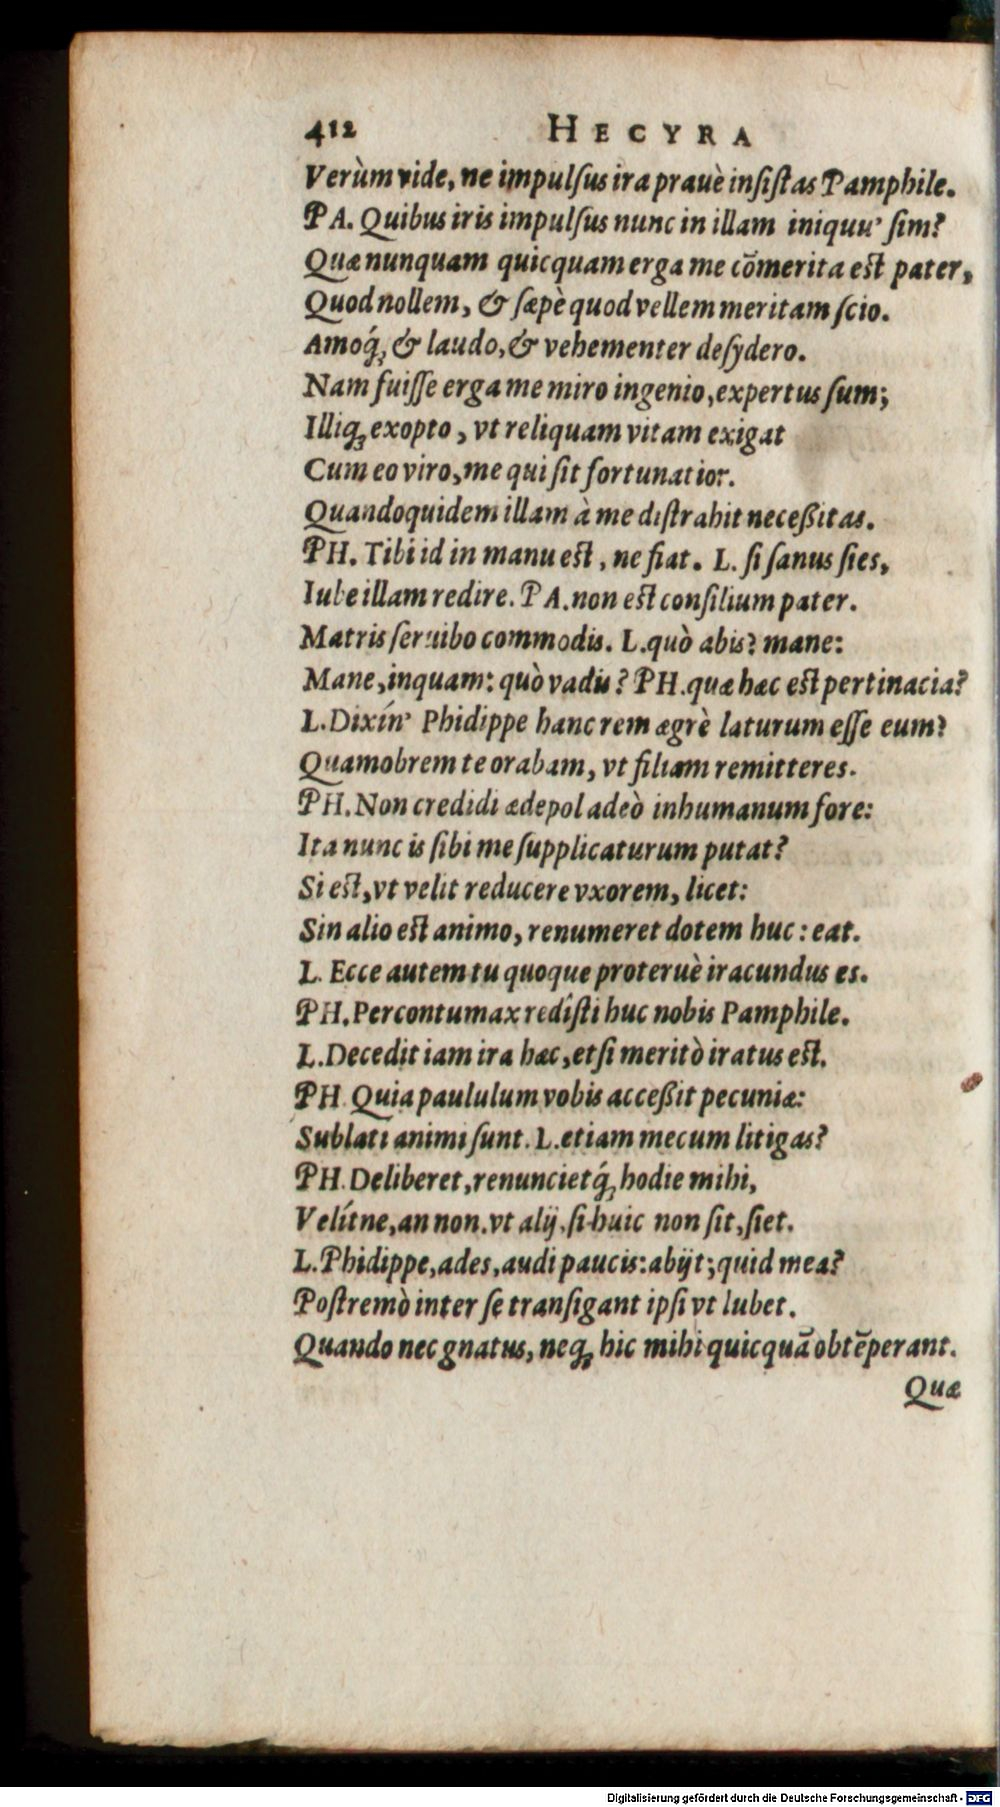 412 HECYRA
Verùm vide, ne impulſus ira prauè inſiſtas Pamphile.
PA. Quibus iris impulſus nunc in illam iniquu' ſim?
Quæ nunquam quicquam erga me cõmerita est pater,
Quod nollem, & ſæpè quod vellem meritam ſcio.
Amoq́;, & laudo, & vehementer deſydero.
Nam fuiſſe erga me miro ingenio, expertus ſum;
Illiq; exopto, vt reliquam vitam exigat
Cum eo viro, me qui ſit fortunatior.
Quandoquidem illam à me diſtrahit neceßitas.
PH. Tibi id in manu est, ne fiat. L. ſi ſanus ſies,
Iube illam redire. PA. non est conſilium pater.
Matris ſeruibo commodis. L. quò abis? mane:
Mane, inquam: quò vadis? PH. quæ hæc est pertinacia?
L. Dixín' Phidippe hanc rem ægrè laturum eſſe eum?
Quamobrem te orabam, vt filiam remitteres.
PH. Non credidi ædepol adeò inhumanum fore:
Ita nunc is ſibi me ſupplicaturum putat?
Si est, vt velit reducere vxorem, licet:
Sin alio est animo, renumeret dotem huc: eat.
L. Ecce autem tu quoque proteruè iracundus es.
PH. Percontumax redîſti huc nobis Pamphile.
L. Decedit iam ira hæc, etſi meritò iratus est.
PH. Quia paululum vobis acceßit pecuniæ:
Sublati animi ſunt. L. etiam mecum litigas?
PH. Deliberet, renuncietq́; hodie mihi,
Velítne, an non. vt alij, ſi huic non ſit, ſiet.
L. Phidippe, ades, audi paucis: abijt; quid mea?
Poſtremò inter ſe tranſigant ipſi vt lubet.
Quando nec gnatus, neq; hic mihi quicquã obtẽperant.
Quæ
Digitalisierung gefördert durch die Deutsche Forschungsgemeinschaft - DFG